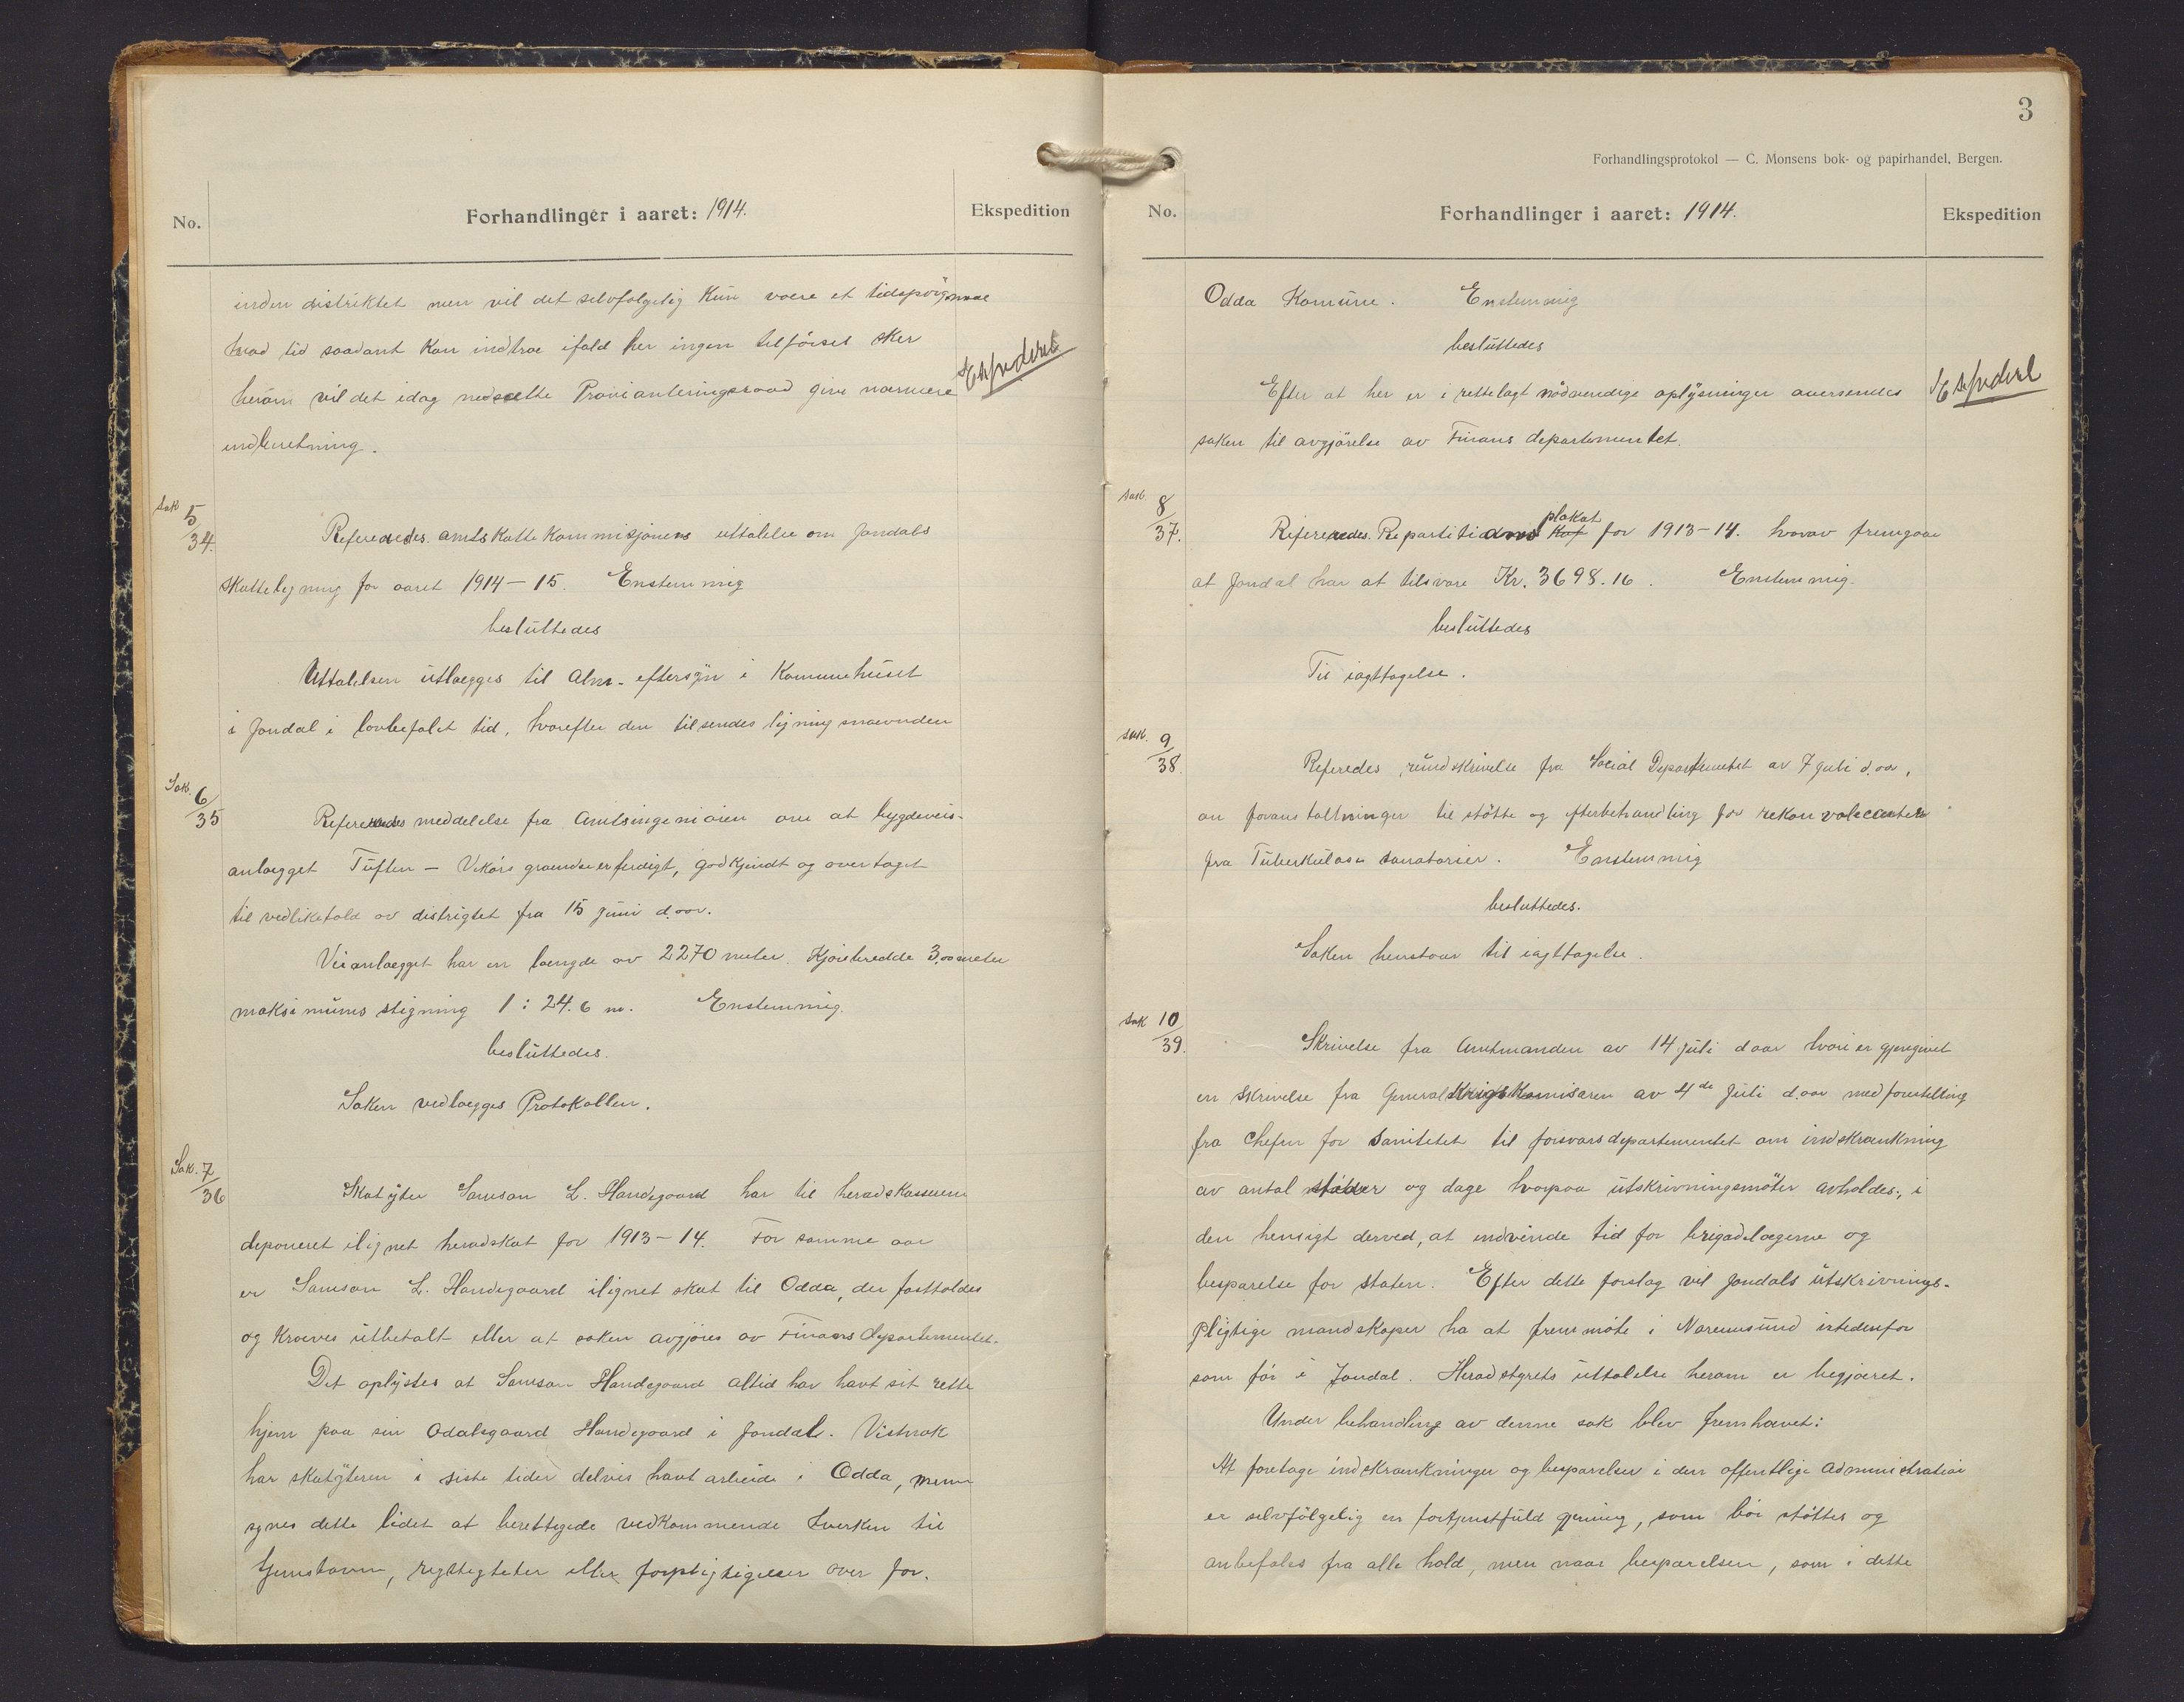 No.
Forhandlinger i aaret: 1914.
Ekspedition
inden distriktet men vil det selvfølgelig kun være et tidsspørgsmaal
hvad tid saadant kan indtræ ifald her ingen tilførsel sker
herom vil det idag nedsætte Provianteringsraad give nærmere
indberetning.
Ekspederet
Sak 5/34.
Refereredes amtskattekommisjonens uttalelse om Jondals
skatteligning for aaret 1914-15. Enstemmig
besluttedes
Uttalelsen utlægges til alm. eftersyn i Kommunehuset
i Jondal i lovbefalet tid, hvorefter den tilsendes ligningsnævnden
Sak. 6/35
Refereredes meddelelse fra Amtsingeniøren om at bygdeveis-
anlægget Tuften - Vikørs grændse er færdigt, godkjendt og overtaget
til vedlikehold av distrigtet fra 15 juni d.aar.
Veianlægget har en længde av 2270 meter. Kjørebredde 3,00 meter
maksimums stigning 1 : 24.6 m. Enstemmig.
besluttedes.
Saken vedlægges Protokollen.
Sak. 7/36
Skatyter Samson L. Handegaard har til heradskassereren
deponeret ilignet heradskat for 1913-14. For samme aar
er Samson L. Handegaard ilignet skat til Odda, der fastholdes
og kræves utbetalt eller at saken avgjøres av Finansdepartementet.
Det oplystes at Samson Handegaard altid har havt sit rette
hjem paa sin Odalsgaard Handegaard i Jondal. Vistnok
har skatyteren i siste tider delvis havt arbeide i Odda, men
synes dette lidet at berettigede vedkommende hverken til
hjemstavn, rigtigheter eller forpligtigelser over for.
3
Forhandlingsprotokol — C. Monsens bok- og papirhandel, Bergen.
No.
Forhandlinger i aaret: 1914.
Ekspedition
Odda Komune. Enstemmig
besluttedes
Efter at her er i rettelagt nødvendige oplysninger oversendes
saken til avgjørelse av Finansdepartementet.
Ekspederet
Sak. 8/37.
Refereredes Repartitions plakat for 1913-14. hvorav fremgaar
at Jondal har at tilsvare Kr. 3698.16. Enstemmig.
besluttedes
Til iagttagelse.
Sak. 9/38.
Referedes rundskrivelse fra Social Departementet av 7 juli d.aar,
om foranstaltninger til støtte og efterbehandling for rekonvalecenter
fra Tuberkulose sanatorier. Enstemmig
besluttedes.
Saken henstaar til iagttagelse.
Sak 10/39.
Skrivelse fra Amtmanden av 14 juli d aar hvori er gjengivet
en skrivelse fra Generalkrigskomisæren av 4de Juli d.aar med forestilling
fra Chefen for Sanitetet til forsvarsdepartementet om indskrænkning
av antal steder og dage hvorpaa utskrivningsmøter avholdes, i
den hensigt derved, at indvinde tid for brigadelægerne og
besparelse for staten. Efter dette forslag vil Jondals utskrivnings-
pligtige mandskaper ha at fremmøte i Noremsund istedenfor
som før i Jondal. Heradstyrets uttalelse herom er begjæret.
Under behandling av denne sak blev fremhævet:
At foretage indskrænkninger og besparelser i den offentlige administration
er selvfølgelig en fortjenstfuld gjerning, som bør støttes og
anbefales fra alle hold, men naar besparelsen, som i dette